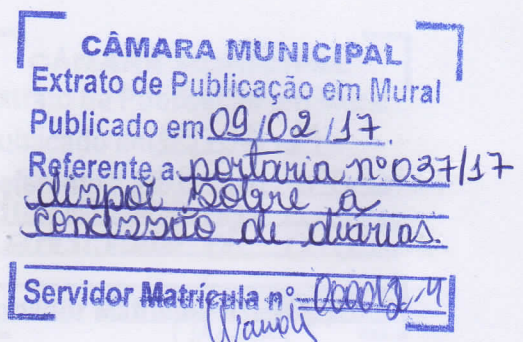 CÂMARA MUNICIPAL
Extrato de Publicação em Mural
Publicado em 09/02/17
Referente a portaria nº 037/17
dispoe sobre a
concissão de diárias.
Servidor Matrícula nº 000012-4